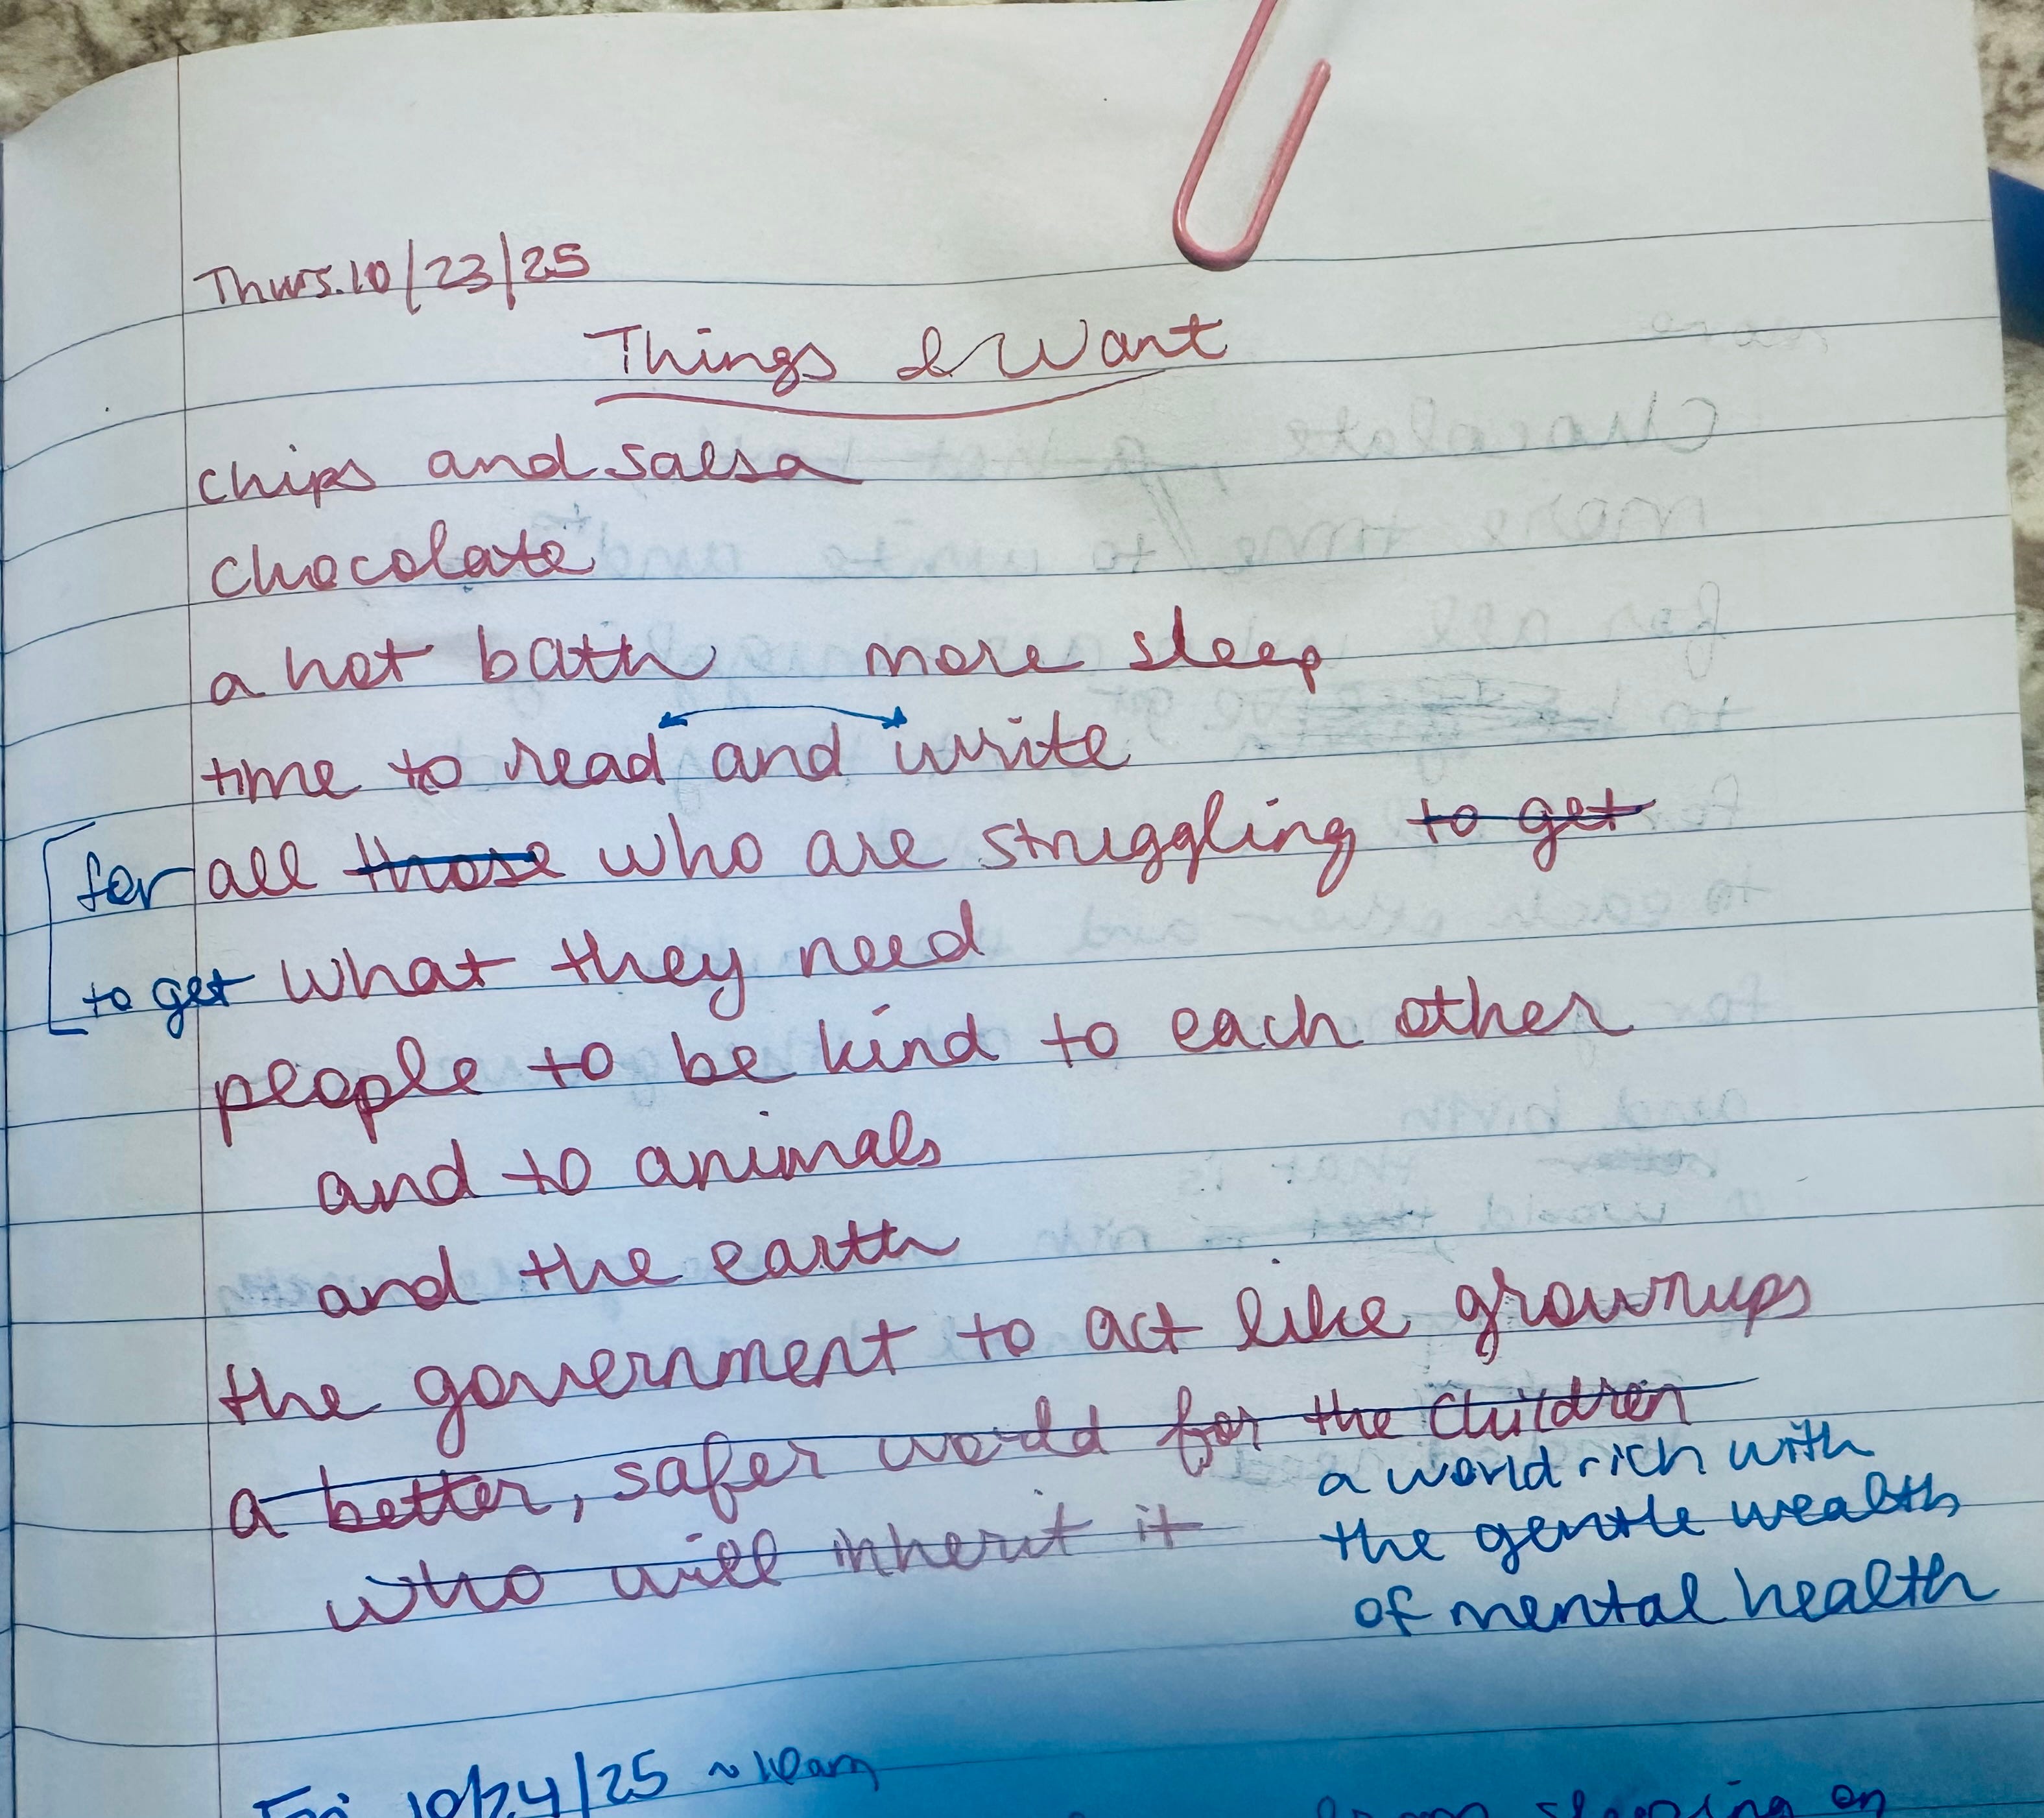 Thurs. 10/23/25
Things I Want
chips and salsa
chocolate
a hot bath more sleep
time to read and write
for all those who are struggling to get
to get what they need
people to be kind to each other
and to animals
and the earth
the government to act like grownups
a better, safer world for the children
who will inherit it
a world rich with
the gentle wealth
of mental health
Fri 10/24/25 ~10am
sleeping on